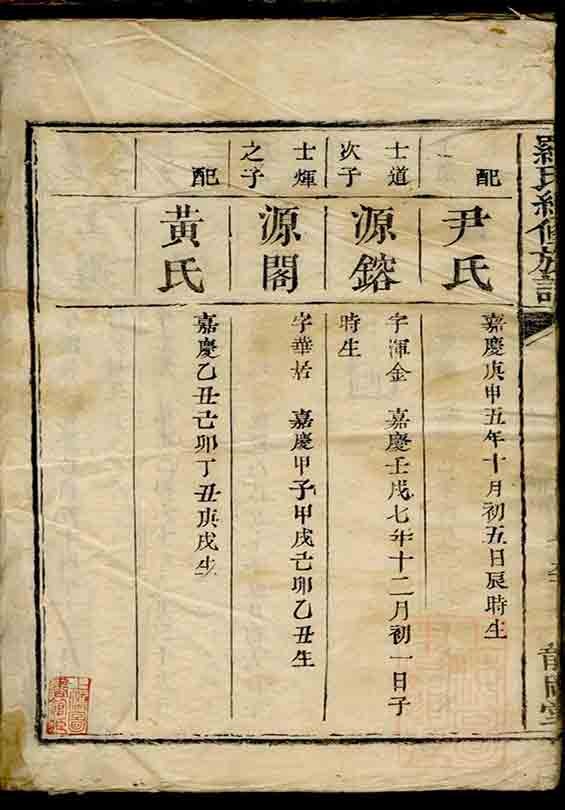 羅氏續修族譜
配
尹氏
嘉慶庚申五年十月初五日辰時生
士道
次子
源鎔
字渾金　嘉慶壬戌七年十二月初一日子
時生
士煇
之子
源閣
字華居　嘉慶甲子甲戌己卯乙丑生
配
黃氏
嘉慶乙丑己卯丁丑庚戌生